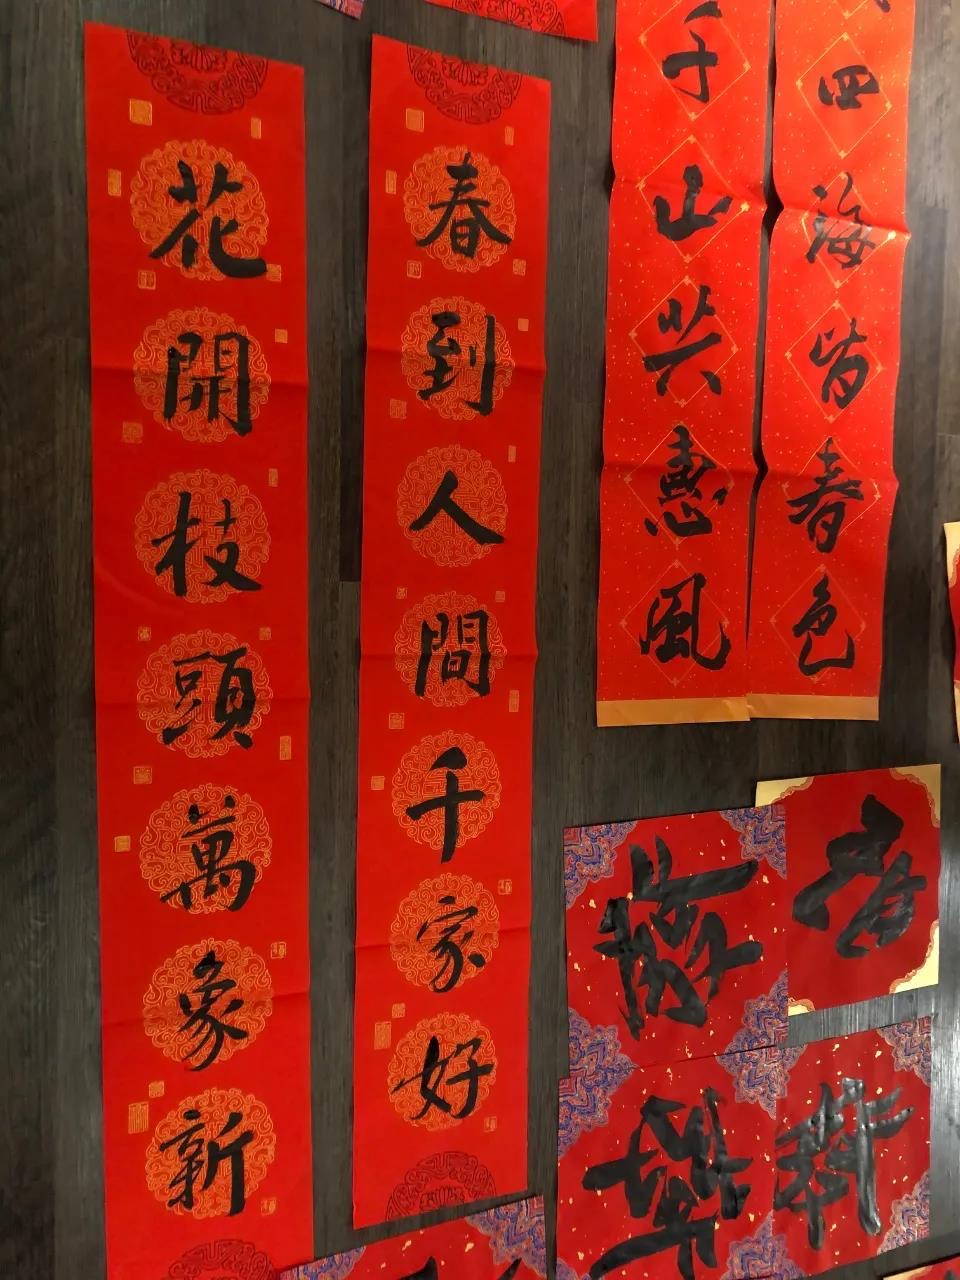 四海皆春色
千山共惠風
春到人間千家好
花開枝頭萬象新